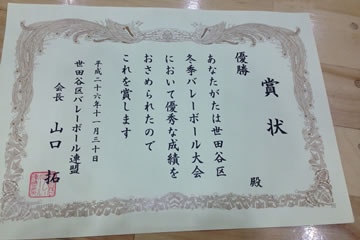 賞状
優勝
殿
あなたがたは世田谷区
冬季バレーボール大会
において優秀な成績を
おさめられたので
これを賞します
平成二十六年十一月三十日
世田谷区バレーボール連盟
会長 山口 拓